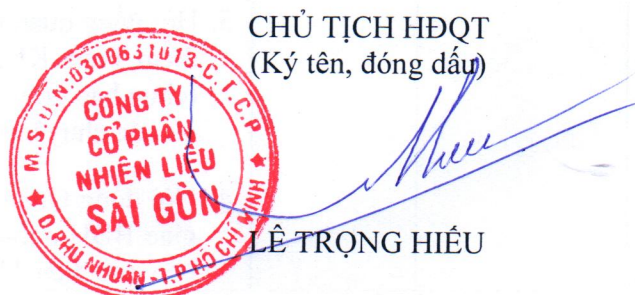 CHỦ TỊCH HĐQT
(Ký tên, đóng dấu)
M.S.D.N:0300631013-C.T.C.P
CÔNG TY
CỔ PHẦN
NHIÊN LIỆU
SÀI GÒN
Q.PHÚ NHUẬN-T.P HỒ CHÍ MINH
LÊ TRỌNG HIẾU